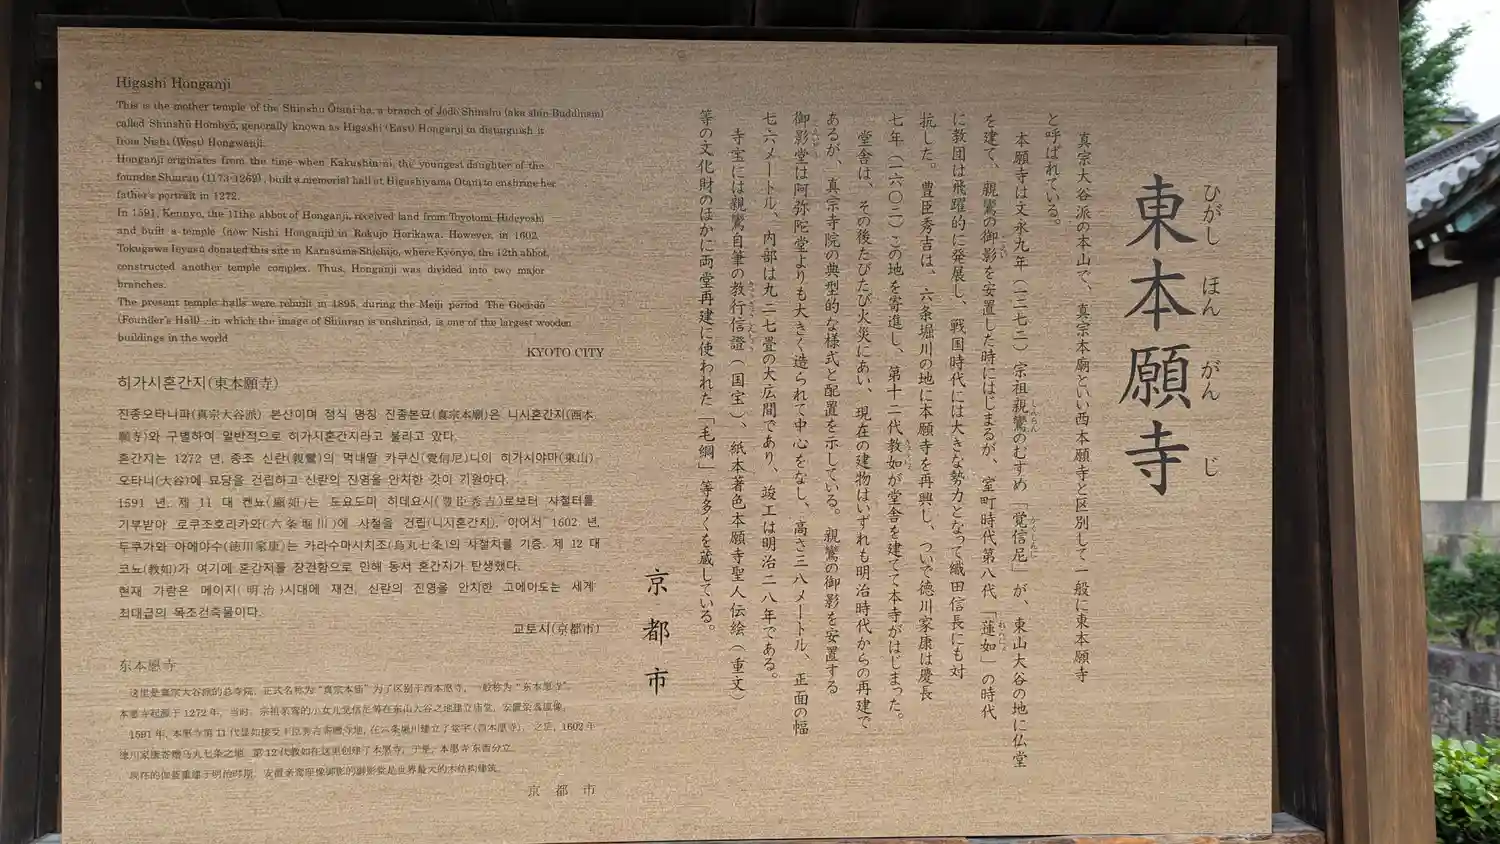 東本願寺
ひがし ほん がん じ
真宗大谷派の本山で、真宗本廟といい西本願寺と区別して一般に東本願寺
と呼ばれている。
本願寺は文永九年(一二七二)宗祖親鸞のむすめ「覚信尼」が、東山大谷の地に仏堂
を建て、親鸞の御影を安置した時にはじまるが、室町時代第八代「蓮如」の時代
に教団は飛躍的に発展し、戦国時代には大きな勢力となって織田信長にも対
抗した。豊臣秀吉は、六条堀川の地に本願寺を再興し、ついで徳川家康は慶長
七年(一六〇二)この地を寄進し、第十二代教如が堂舎を建てて本寺がはじまった。
堂舎は、その後たびたび火災にあい、現在の建物はいずれも明治時代からの再建で
あるが、真宗寺院の典型的な様式と配置を示している。親鸞の御影を安置する
御影堂は阿弥陀堂よりも大きく造られて中心をなし、高さ三八メートル、正面の幅
七六メートル、内部は九二七畳の大広間であり、竣工は明治二八年である。
寺宝には親鸞自筆の教行信證(国宝)、紙本著色本願寺聖人伝絵(重文)
等の文化財のほかに両堂再建に使われた「毛綱」等多くを蔵している。
京都市
Higashi Honganji
This is the mother temple of the Shinshu Ōtani-ha, a branch of Jōdo Shinshu (aka shin Buddhism)
called Shinshū Hombyō, generally known as Higashi (East) Honganji to distinguish it
from Nishi (West) Hongwanji.
Honganji originates from the time when Kakushin ni, the youngest daughter of the
founder Shinran (1173-1262), built a memorial hall at Higashiyama Otani to enshrine her
father's portrait in 1272.
In 1591, Kennyo, the 11the abbot of Honganji, received land from Toyotomi Hideyoshi
and built a temple (now Nishi Honganji) in Rokujo Horikawa. However, in 1602,
Tokugawa Ieyasu donated this site in Karasuma Shichijo, where Kyonyo, the 12th abbot,
constructed another temple complex. Thus, Honganji was divided into two major
branches.
The present temple halls were rebuilt in 1895, during the Meiji period. The Goei-dō
(Founder's Hall), in which the image of Shinran is enshrined, is one of the largest wooden
buildings in the world
KYOTO CITY
히가시혼간지(東本願寺)
진종오타니파(真宗大谷派) 본산이며 정식 명칭 진종본묘(真宗本廟)은 니시혼간지(西本
願寺)와 구별하여 일반적으로 히가시혼간지라고 불리고 있다.
혼간지는 1272 년, 종조 신란(親鸞)의 막내딸 카쿠신(覚信尼)니이 히가시야마(東山)
오타니(大谷)에 묘당을 건립하고 신란의 진영을 안치한 것이 기원이다.
1591 년, 제 11 대 켄뇨(顕如)는 도요도미 히데요시(豊臣秀吉)로부터 사찰터를
기부받아 로쿠조호리카와(六条堀川)에 사절을 건립(니시혼간지), 이어서 1602 년,
도쿠가와 이에야수(徳川家康)는 카라수마시치조(烏丸七条)의 사절지를 기증. 제 12 대
쿄뇨(教如)가 여기에 혼간지를 창건함으로 인해 동서 혼간지가 탄생했다.
현재 가람은 메이지(明治)시대에 재건, 신란의 진영을 안치한 고에이도는 세계
최대급의 목조건축물이다.
교토시(京都市)
东本愿寺
这里是真宗大谷派的总寺院，正式名称为“真宗本庙”为了区别于西本愿寺，一般称为“东本愿寺”。
本愿寺起源于1272年，当时，宗祖亲鸾的小女儿觉信尼等在东山大谷之地建立庙堂，安置亲鸾遗像。
1591年，本愿寺第11代显如接受丰臣秀吉寄赠寺地，在六条堀川建立了堂宇(西本愿寺)，之后，1602年
德川家康寄赠乌丸七条之地，第12代教如在这里创建了本愿寺，于是，本愿寺东西分立。
现存的伽蓝重建于明治时期，安置亲鸾圣像御影的御影堂是世界最大的木结构建筑。
京都市